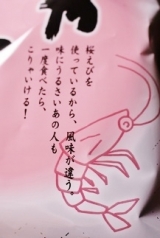 桜えびを
使っているから、風味が違う。
味にうるさいあの人も
一度食べたら、
こりゃいける！